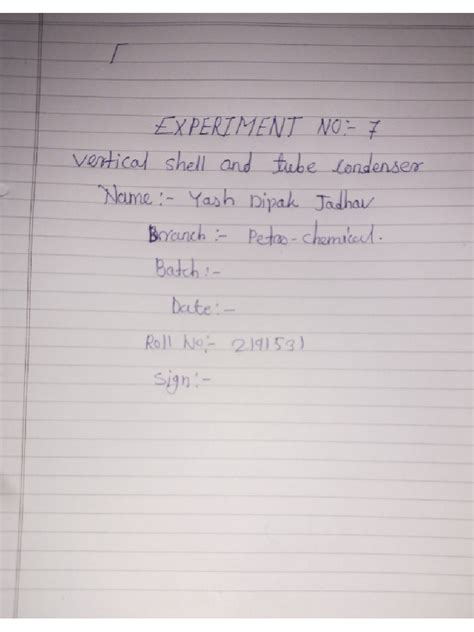 EXPERIMENT NO:- 7
Vertical shell and tube Condenser
Name :- Yash Dipak Jadhav
Branch :- Petro-chemical.
Batch :-
Date :-
Roll No:- 2191531
Sign :-